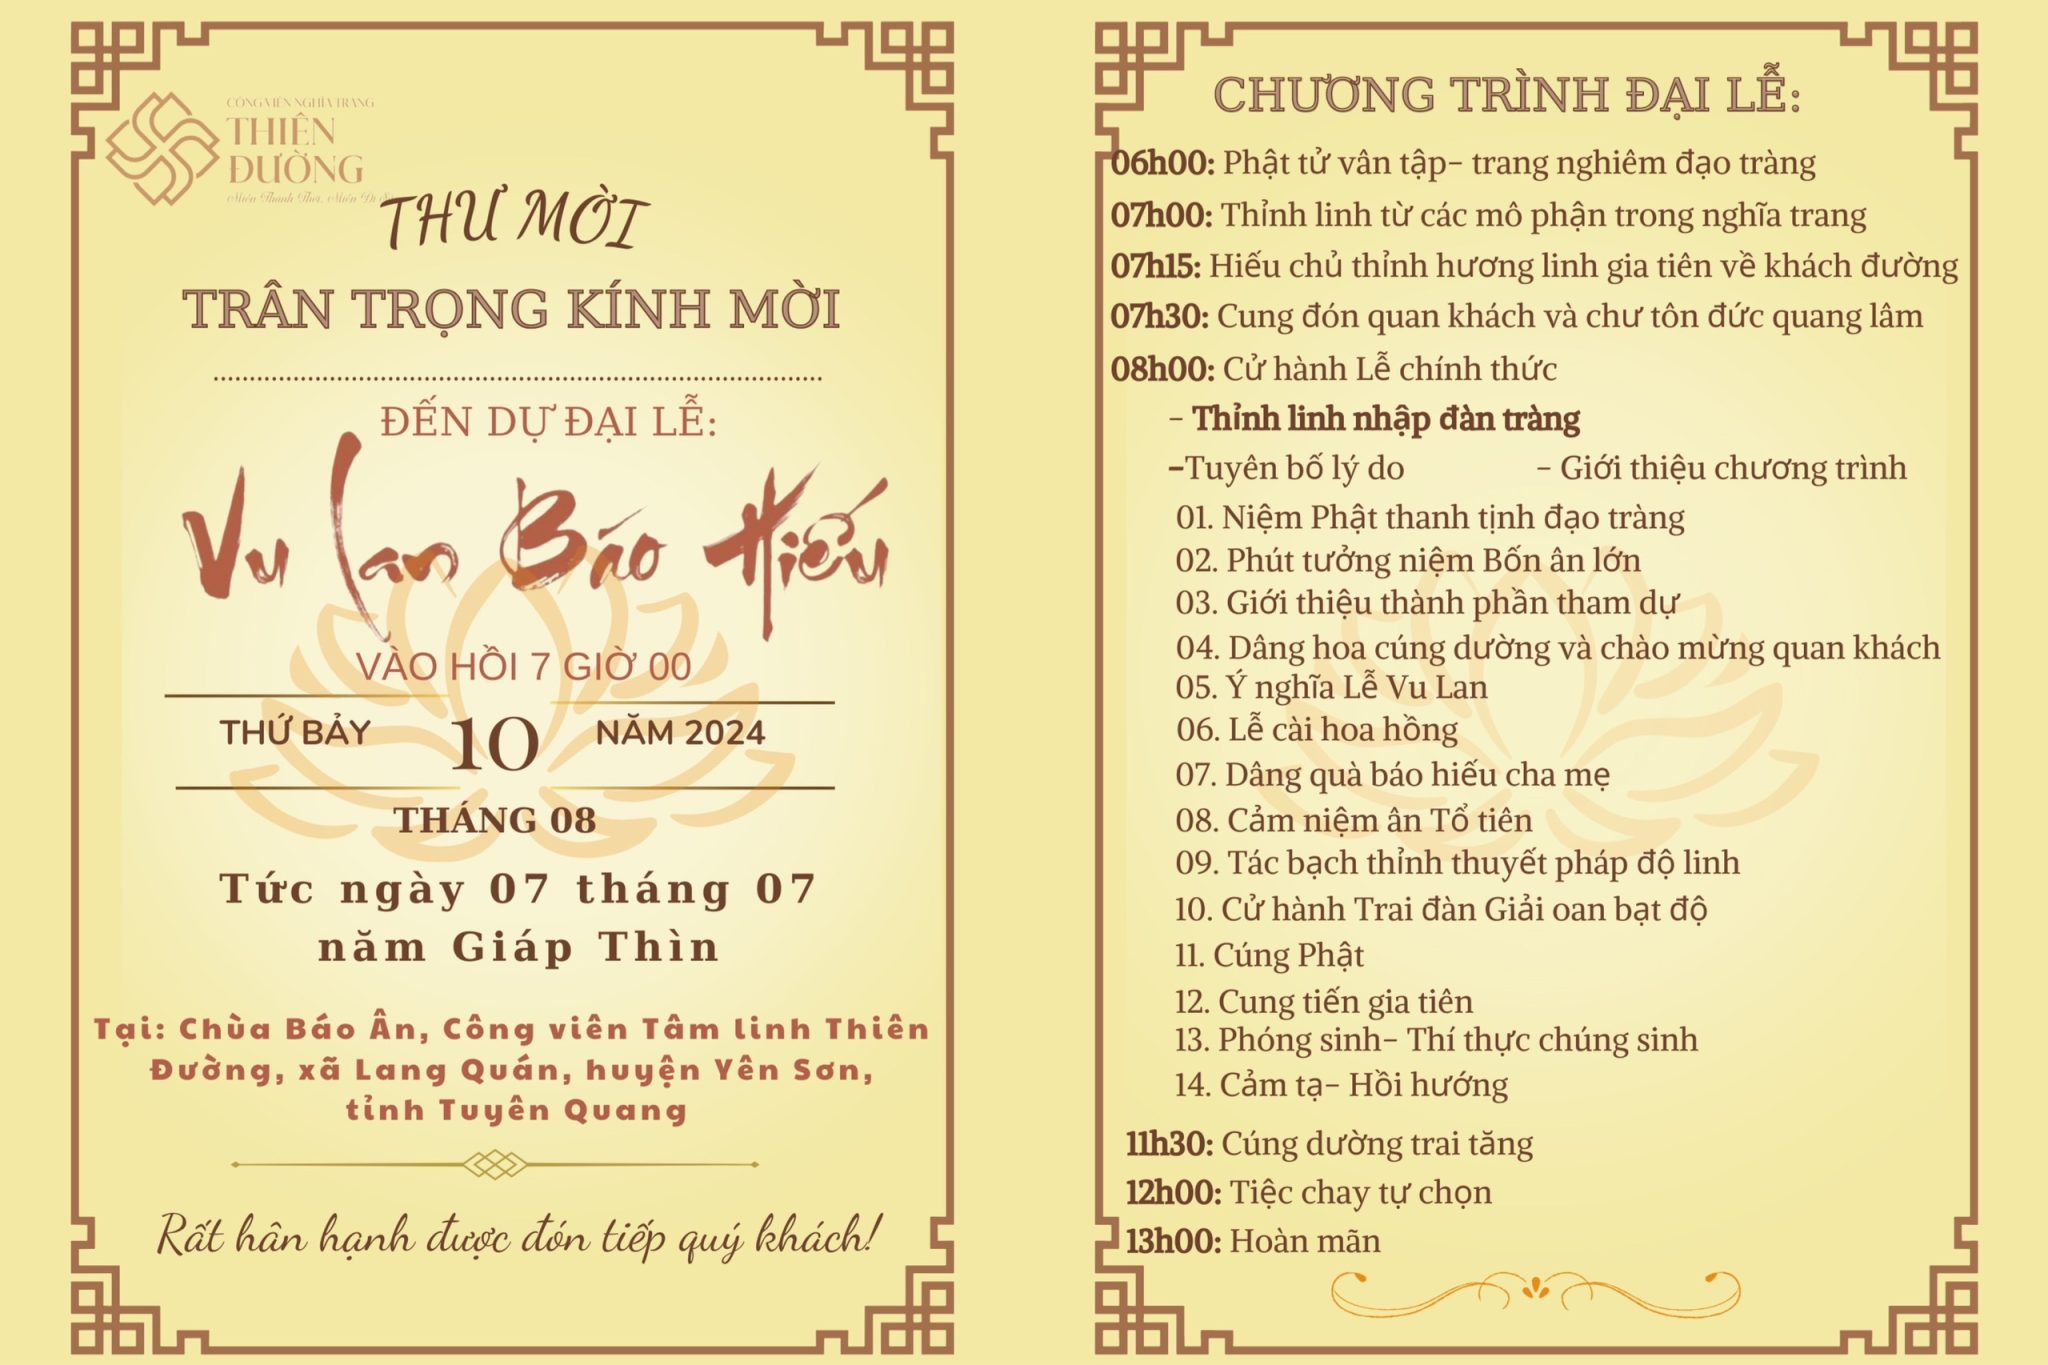 CÔNG VIÊN NGHĨA TRANG
THIÊN
ĐƯỜNG
THƯ MỜI
TRÂN TRỌNG KÍNH MỜI
ĐẾN DỰ ĐẠI LỄ:
Vu Lan Báo Hiếu
VÀO HỒI 7 GIỜ 00
THỨ BẢY 10 NĂM 2024
THÁNG 08
Tức ngày 07 tháng 07
năm Giáp Thìn
Tại: Chùa Báo Ân, Công viên Tâm linh Thiên
Đường, xã Lang Quán, huyện Yên Sơn,
tỉnh Tuyên Quang
Rất hân hạnh được đón tiếp quý khách!
CHƯƠNG TRÌNH ĐẠI LỄ:
06h00: Phật tử vân tập- trang nghiêm đạo tràng
07h00: Thỉnh linh từ các mô phận trong nghĩa trang
07h15: Hiếu chủ thỉnh hương linh gia tiên về khách đường
07h30: Cung đón quan khách và chư tôn đức quang lâm
08h00: Cử hành Lễ chính thức
- Thỉnh linh nhập đàn tràng
-Tuyên bố lý do - Giới thiệu chương trình
01. Niệm Phật thanh tịnh đạo tràng
02. Phút tưởng niệm Bốn ân lớn
03. Giới thiệu thành phần tham dự
04. Dâng hoa cúng dường và chào mừng quan khách
05. Ý nghĩa Lễ Vu Lan
06. Lễ cài hoa hồng
07. Dâng quà báo hiếu cha mẹ
08. Cảm niệm ân Tổ tiên
09. Tác bạch thỉnh thuyết pháp độ linh
10. Cử hành Trai đàn Giải oan bạt độ
11. Cúng Phật
12. Cung tiến gia tiên
13. Phóng sinh- Thí thực chúng sinh
14. Cảm tạ- Hồi hướng
11h30: Cúng dường trai tăng
12h00: Tiệc chay tự chọn
13h00: Hoàn mãn